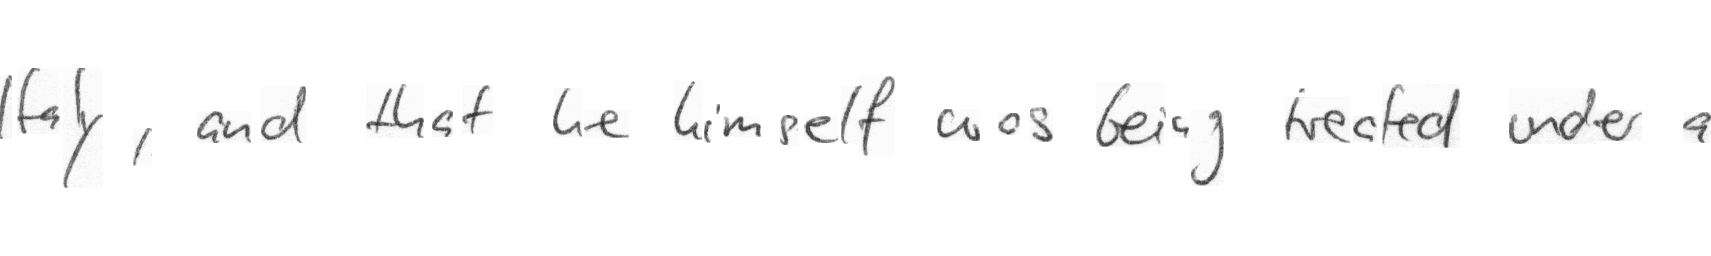 Italy, and that he himself was being treated under a